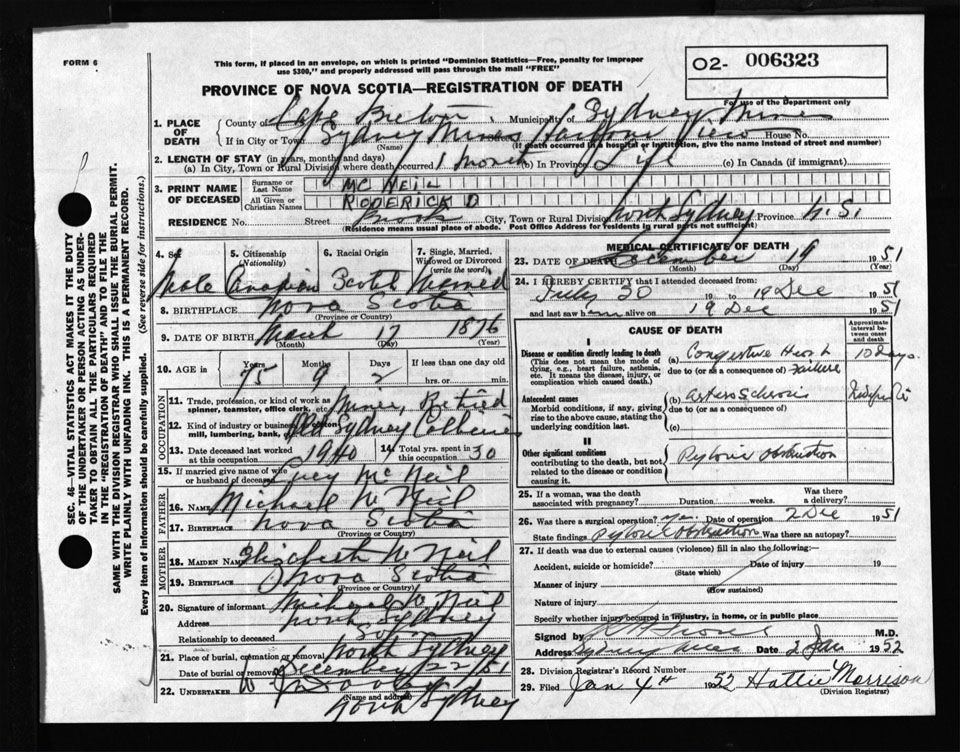 FORM 6
This form, if placed in an envelope, on which is printed "Dominion Statistics—Free, penalty for improper
use $300," and properly addressed will pass through the mail "FREE"
O2- 006323
For use of the Department only
PROVINCE OF NOVA SCOTIA—REGISTRATION OF DEATH
1. PLACE OF DEATH County of Cape Breton Municipality of Sydney Mines
If in City or Town Sydney Mines Harbour View House No.
(Name) (If death occurred in a hospital or institution, give the name instead of street and number)
2. LENGTH OF STAY (in years, months and days)
(a) In City, Town or Rural Division where death occurred 1 month (b) In Province Life (c) In Canada (if immigrant)
3. PRINT NAME OF DECEASED Surname or Last Name MC NEIL
All Given or Christian Names RODERICK D
RESIDENCE No. Street Brook City, Town or Rural Division North Sydney Province N.S.
(Residence means usual place of abode. Post Office Address for residents in rural parts not sufficient)
4. Sex 5. Citizenship (Nationality) 6. Racial Origin 7. Single, Married, Widowed or Divorced (write the word)
Male Canadian Scotch Married
8. BIRTHPLACE Nova Scotia
(Province or Country)
9. DATE OF BIRTH March 17 1876
(Month) (Day) (Year)
10. AGE in Years Months Days If less than one day old
75 9 2 hrs. or min.
OCCUPATION
11. Trade, profession, or kind of work as spinner, teamster, office clerk, etc. Miner, Retired
12. Kind of industry or business, as cotton mill, lumbering, bank, Old Sydney Collieries
13. Date deceased last worked at this occupation 1940 14. Total yrs. spent in this occupation 30
15. If married give name of wife or husband of deceased Lucy McNeil
FATHER
16. NAME Michael McNeil
17. BIRTHPLACE Nova Scotia
(Province or Country)
MOTHER
18. MAIDEN NAME Elizabeth McNeil
19. BIRTHPLACE Nova Scotia
(Province or Country)
20. Signature of informant Michael McNeil
Address North Sydney
Relationship to deceased Son
21. Place of burial, cremation or removal North Sydney
Date of burial or removal December 22/51
22. UNDERTAKER
(Name and address)
North Sydney
MEDICAL CERTIFICATE OF DEATH
23. DATE OF DEATH December 19 1951
(Month) (Day) (Year)
24. I HEREBY CERTIFY that I attended deceased from:
July 30 19 to 19 Dec 1951
and last saw him alive on 19 Dec 1951
CAUSE OF DEATH
Approximate interval between onset and death
I
Disease or condition directly leading to death (a) Congestive Heart 10 days.
(This does not mean the mode of dying, e.g., heart failure, asthenia, etc. It means the disease, injury, or complication which caused death.) due to (or as a consequence of) Failure
Antecedent causes (b) Arteriosclerosis
Morbid conditions, if any, giving rise to the above cause, stating the underlying condition last. due to (or as a consequence of)
(c)
II
Other significant conditions contributing to the death, but not related to the disease or condition causing it. Pyloric Obstruction
25. If a woman, was the death associated with pregnancy? Duration weeks. Was there a delivery?
26. Was there a surgical operation? yes. Date of operation 2 Dec 1951
State findings Pyloric Obstruction Was there an autopsy?
27. If death was due to external causes (violence) fill in also the following:
Accident, suicide or homicide? Date of injury 19
(State which)
Manner of injury
(How sustained)
Nature of injury
Specify whether injury occurred in industry, in home, or in public place
Signed by M.D.
Address Sydney Mines Date 2 Jan 1952
28. Division Registrar's Record Number
29. Filed Jan 4th 1952 Hattie Morrison
(Division Registrar)
SEC. 46—VITAL STATISTICS ACT MAKES IT THE DUTY
OF THE UNDERTAKER OR PERSON ACTING AS UNDER-
TAKER TO OBTAIN ALL THE PARTICULARS REQUIRED
IN THE "REGISTRATION OF DEATH" AND TO FILE THE
SAME WITH THE DIVISION REGISTRAR WHO SHALL ISSUE THE BURIAL PERMIT.
WRITE PLAINLY WITH UNFADING INK. THIS IS A PERMANENT RECORD.
Every item of information should be carefully supplied. (See reverse side for instructions.)